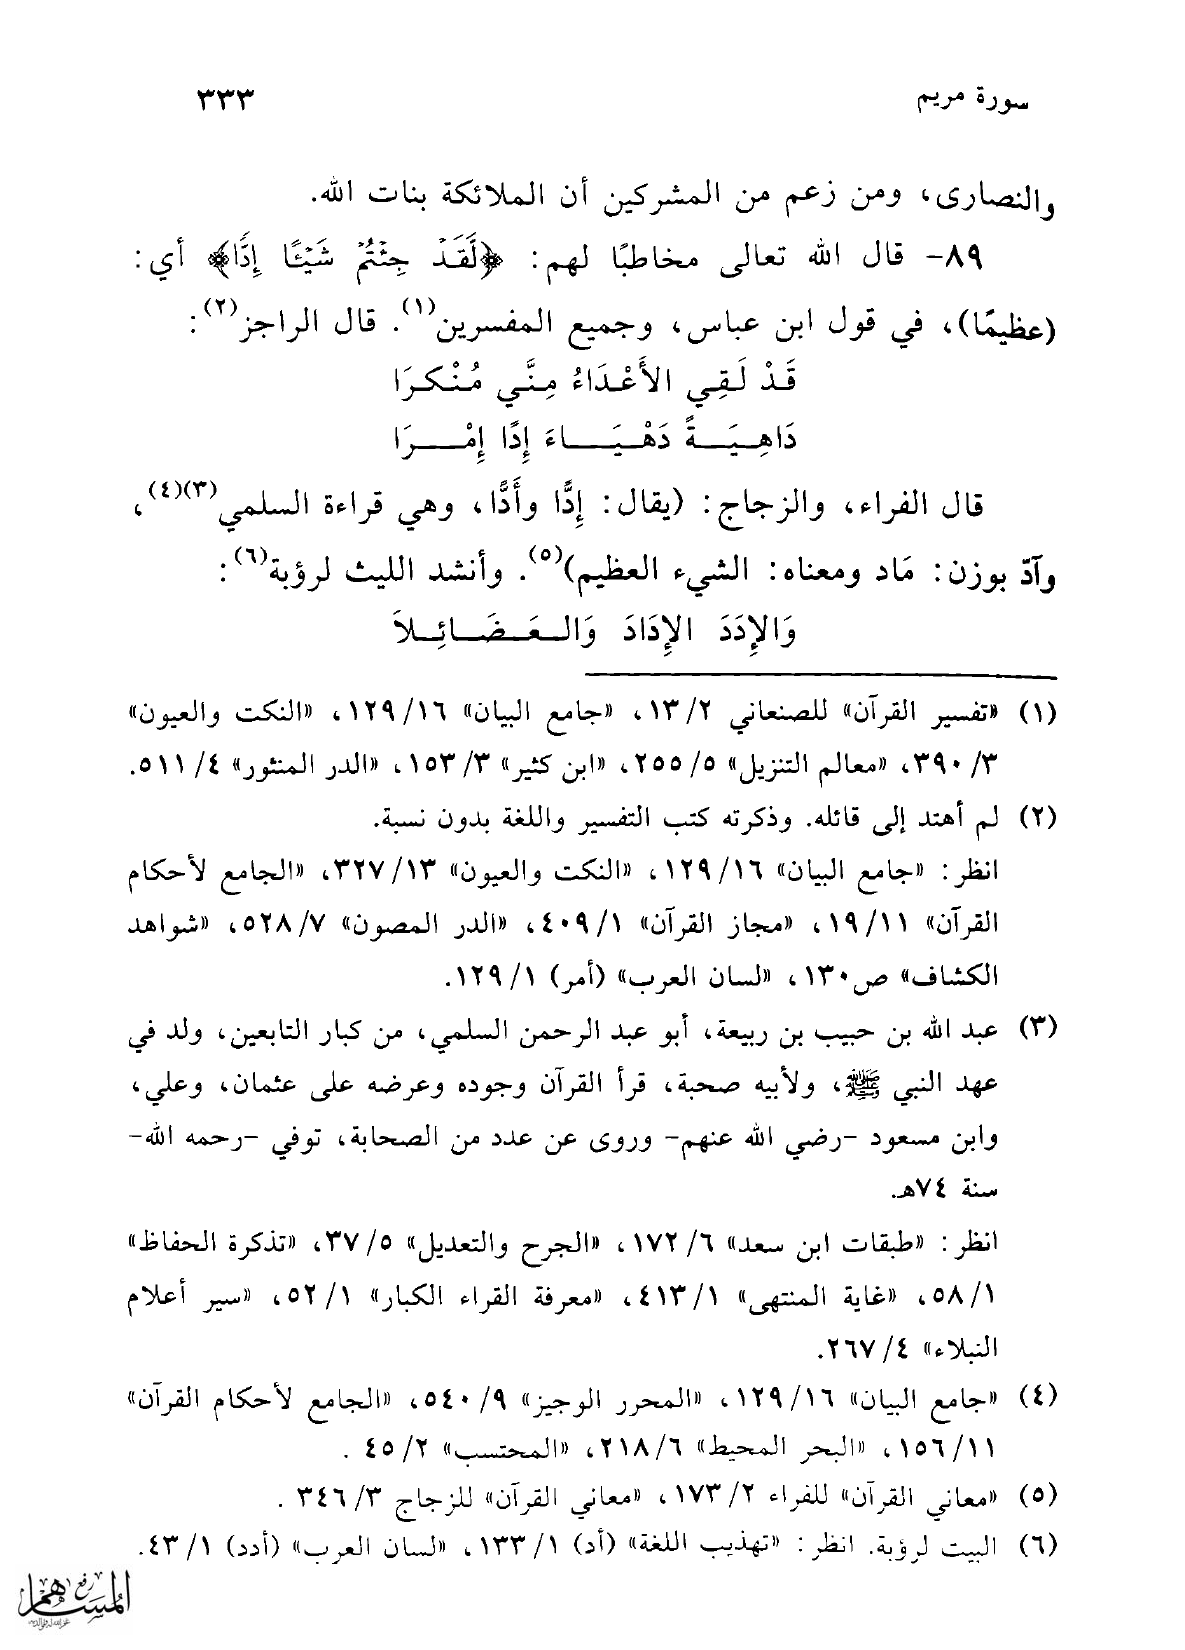 سورة مريم ٣٣٣
والنصارى، ومن زعم من المشركين أن الملائكة بنات الله.
٨٩- قال الله تعالى مخاطبًا لهم: ﴿لَّقَدْ جِئْتُمْ شَيْئًا إِدًّا﴾ أي:
(عظيمًا)، في قول ابن عباس، وجميع المفسرين(١). قال الراجز(٢):
قَدْ لَقِي الأَعْدَاءُ مِنَّي مُنْكرَا
دَاهِيَةً دَهْيَاءَ إِدًا إِمْرَا
قال الفراء، والزجاج: (يقال: إِدًّا وأَدًّا، وهي قراءة السلمي(٣)(٤)،
وآدّ بوزن: مَاد ومعناه: الشيء العظيم)(٥). وأنشد الليث لرؤبة(٦):
وَالإِدَدَ الإِدَادَ وَالعَضَائِلاَ
(١) «تفسير القرآن» للصنعاني ٢/ ١٣، «جامع البيان» ١٦/ ١٢٩، «النكت والعيون»
٣/ ٣٩٠، «معالم التنزيل» ٥/ ٢٥٥، «ابن كثير» ٣/ ١٥٣، «الدر المنثور» ٤/ ٥١١.
(٢) لم أهتد إلى قائله. وذكرته كتب التفسير واللغة بدون نسبة.
انظر: «جامع البيان» ١٦/ ١٢٩، «النكت والعيون» ١٣/ ٣٢٧، «الجامع لأحكام
القرآن» ١١/ ١٩، «مجاز القرآن» ١/ ٤٠٩، «الدر المصون» ٧/ ٥٢٨، «شواهد
الكشاف» ص١٣٠، «لسان العرب» (أمر) ١/ ١٢٩.
(٣) عبد الله بن حبيب بن ربيعة، أبو عبد الرحمن السلمي، من كبار التابعين، ولد في
عهد النبي ﷺ، ولأبيه صحبة، قرأ القرآن وجوده وعرضه على عثمان، وعلي،
وابن مسعود -رضي الله عنهم- وروى عن عدد من الصحابة، توفي -رحمه الله-
سنة ٧٤هـ.
انظر: «طبقات ابن سعد» ٦/ ١٧٢، «الجرح والتعديل» ٥/ ٣٧، «تذكرة الحفاظ»
١/ ٥٨، «غاية المنتهى» ١/ ٤١٣، «معرفة القراء الكبار» ١/ ٥٢، «سير أعلام
النبلاء» ٤/ ٢٦٧.
(٤) «جامع البيان» ١٦/ ١٢٩، «المحرر الوجيز» ٩/ ٥٤٠، «الجامع لأحكام القرآن»
١١/ ١٥٦، «البحر المحيط» ٦/ ٢١٨، «المحتسب» ٢/ ٤٥ .
(٥) «معاني القرآن» للفراء ٢/ ١٧٣، «معاني القرآن» للزجاج ٣/ ٣٤٦ .
(٦) البيت لرؤبة. انظر: «تهذيب اللغة» (أد) ١/ ١٣٣، «لسان العرب» (أدد) ١/ ٤٣.